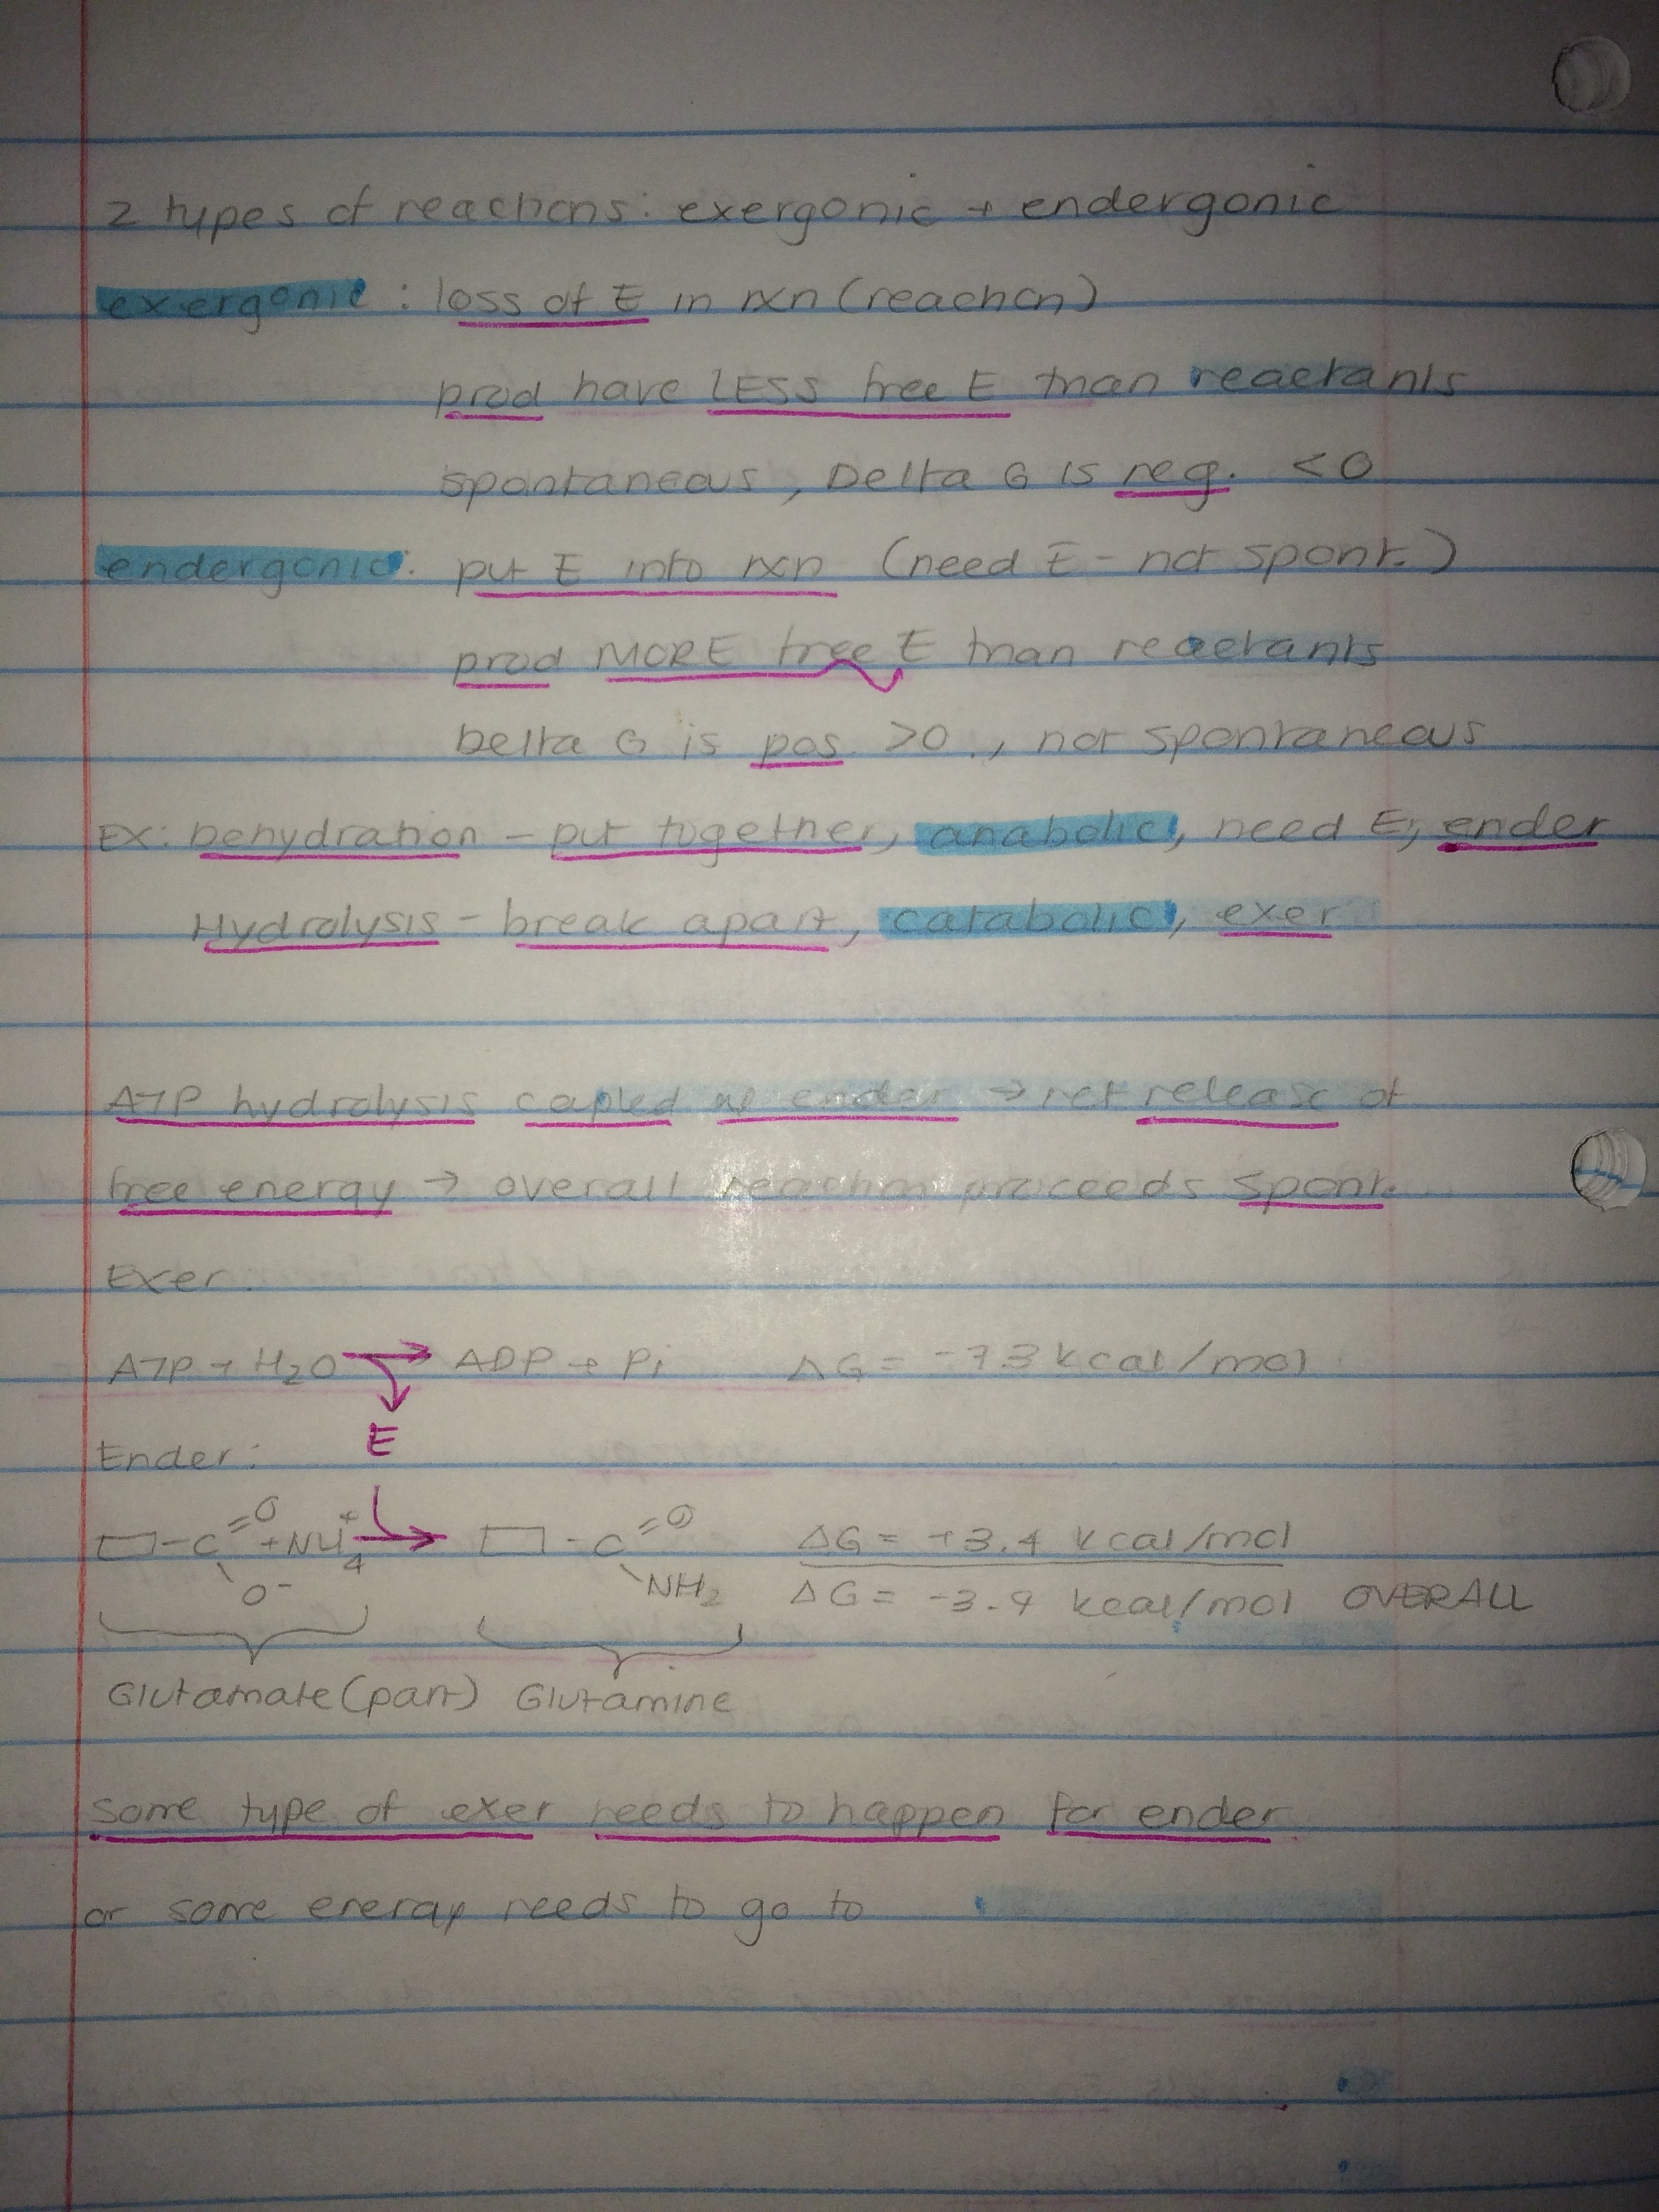 2 types of reactions: exergonic + endergonic
exergonic: loss of E in rxn (reaction)
prod have LESS free E than reactants
spontaneous, Delta G is neg. <0
endergonic: put E into rxn (need E - not spont.)
prod MORE free E than reactants
Delta G is pos. >0, not spontaneous
EX: Dehydration - put together, anabolic, need E, ender
Hydrolysis - break apart, catabolic, exer
ATP hydrolysis coupled w/ ender → net release of
free energy → overall reaction proceeds spont.
Exer:
ATP + H2O → ADP + Pi ΔG = -7.3 kcal/mol
E
Ender:
-C=O O- + NH4+ → -C=O NH2 ΔG = +3.4 kcal/mol
ΔG = -3.9 kcal/mol OVERALL
Glutamate (part) Glutamine
some type of exer needs to happen for ender
or some energy needs to go to